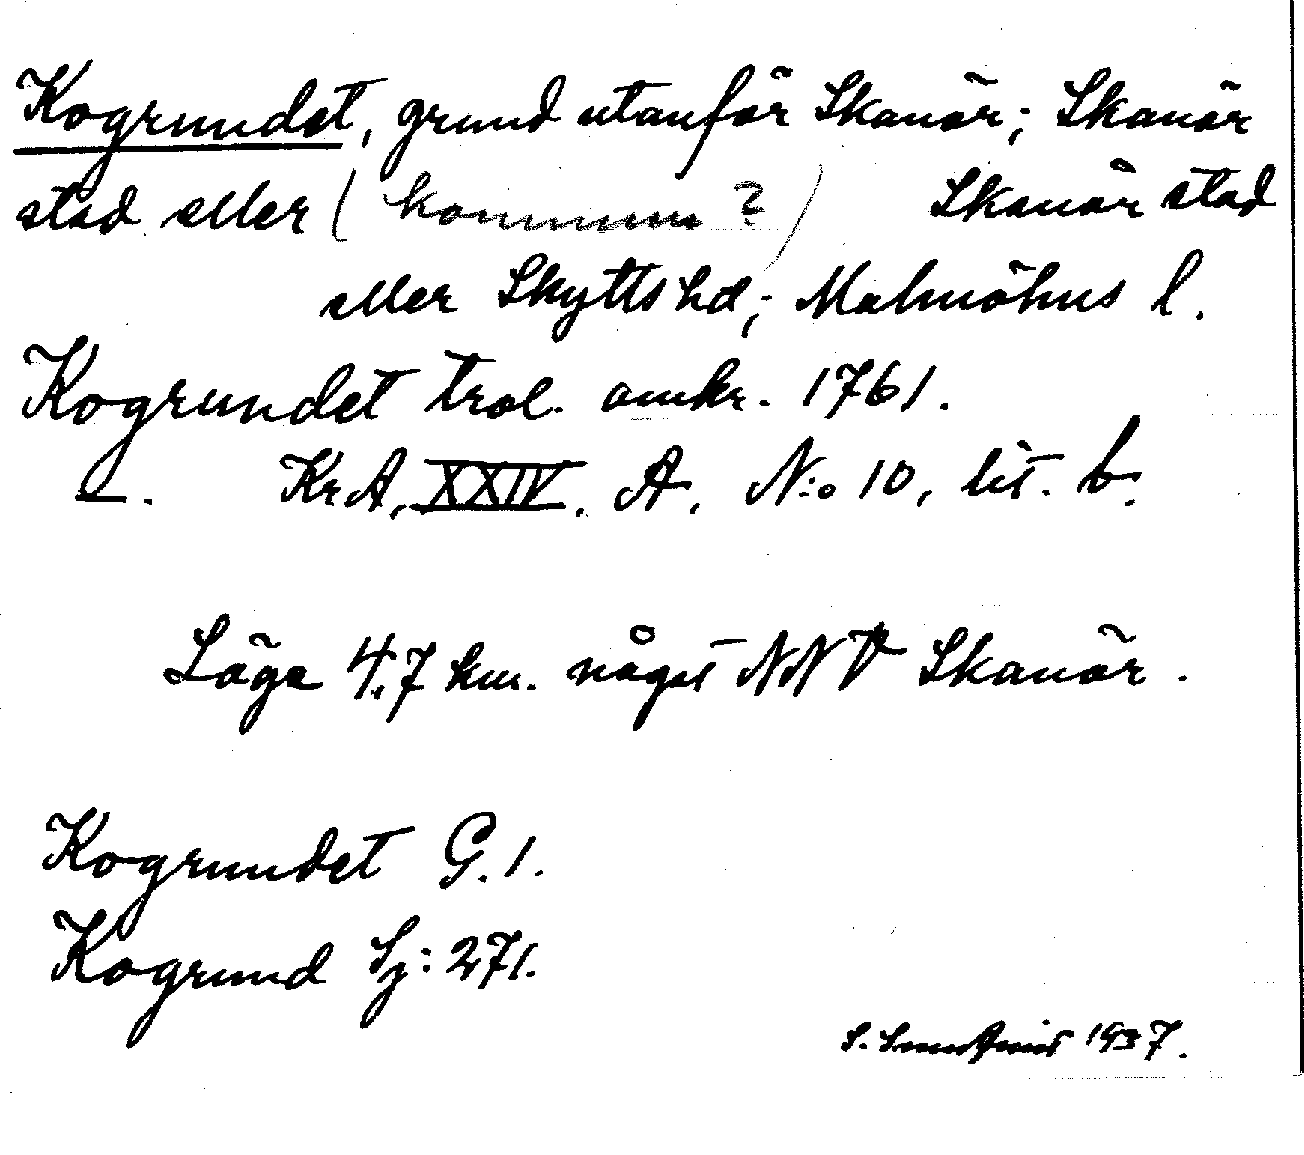 Kogrundet, grund utanför Skanör; Skanör
stad eller (kommun?) Skanör stad
eller Skytts hd; Malmöhus l.
Kogrundet trol. omkr. 1761.
—. KrA, XXIV. A. N:o 10, lit. b.
Läge 4.7 km. något NNV Skanör.
Kogrundet G.1.
Kogrund Sj: 271.
S. 1937.